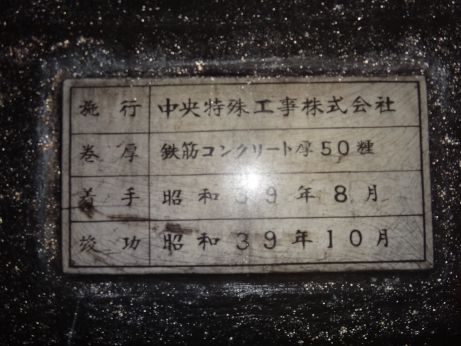 施行 中央特殊工事株式会社
巻厚 鉄筋コンクリート厚50糎
着手 昭和39年8月
竣功 昭和39年10月